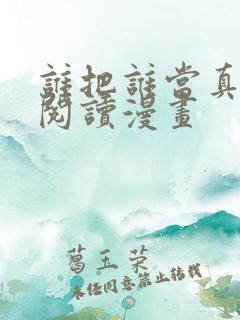 誰把誰當真
閱讀漫畫
葛玉荣
未经同意禁止转载